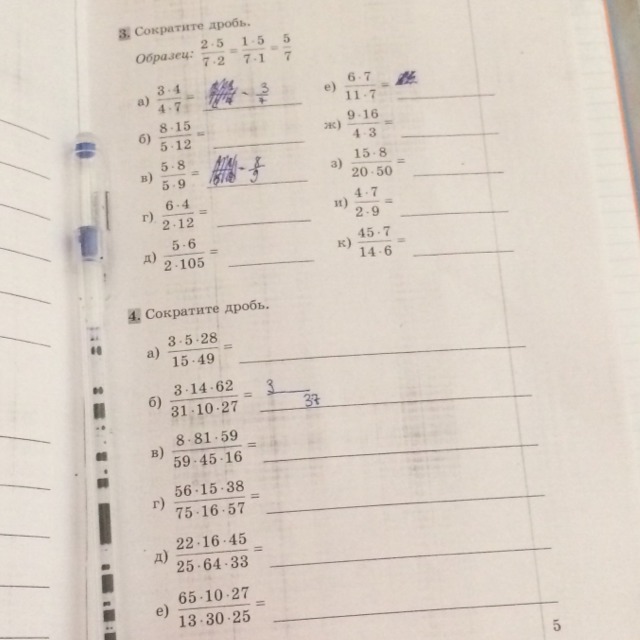 3. Сократите дробь.
Образец: 2·5/7·2 = 1·5/7·1 = 5/7
а) 3·4/4·7 = - 3/7
б) 8·15/5·12 =
в) 5·8/5·9 = - 8/9
г) 6·4/2·12 =
д) 5·6/2·105 =
е) 6·7/11·7 =
ж) 9·16/4·3 =
з) 15·8/20·50 =
и) 4·7/2·9 =
к) 45·7/14·6 =
4. Сократите дробь.
а) 3·5·28/15·49 =
б) 3·14·62/31·10·27 = 3
в) 8·81·59/59·45·16 =
г) 56·15·38/75·16·57 =
д) 22·16·45/25·64·33 =
е) 65·10·27/13·30·25 =
5